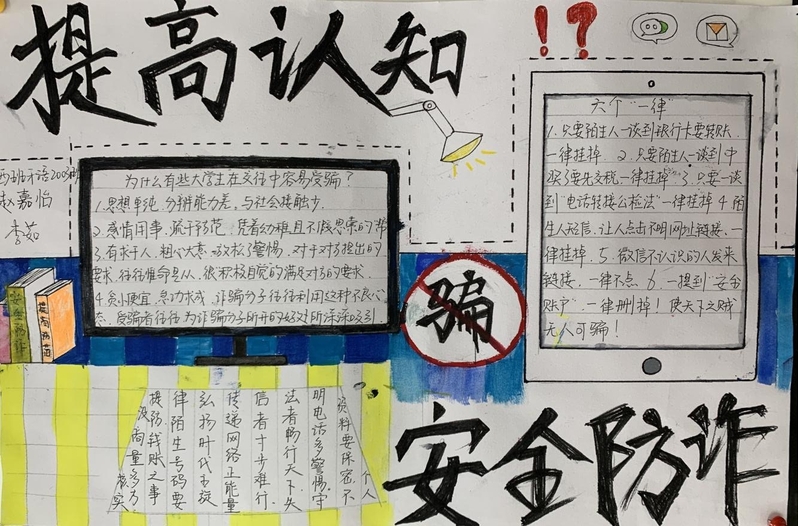 提高认知
!?
西班牙语2003班
赵嘉怡
李茹
为什么有些大学生在交往中容易受骗?
1.思想单纯,分辨能力差。与社会接触少.
2.感情用事,疏于防范,凭着幼稚且不假思索的帮
3.有求于人,粗心大意,放松了警惕,对于对方提出的
要求,往往惟命是从,很积极自觉的满足对方的要求
4.贪小便宜,急功求成,诈骗分子往往利用这种不良心
态,受骗者往往为诈骗分子所开的好处所深深吸引
六个"一律"
1.只要陌生人一谈到银行卡要转账
一律挂掉. 2.只要陌生人一谈到中
奖了要先交税一律挂掉 3.只要一谈
到"电话转接公检法"一律挂掉 4.陌
生人短信,让人点击不明网址链接,一
律挂掉. 5.微信不认识的人发来
链接,一律不点. 6.一提到"安全
账户",一律删掉!使天下之贼
无人可骗!
安全防诈
提高防范
骗
个人
资料要保密,不
明电话多警惕,守
法者畅行天下,失
信者寸步难行.
传递网络正能量
弘扬时代主旋
律陌生号码要
提防转账之事
没商量多方
核实
安全防诈